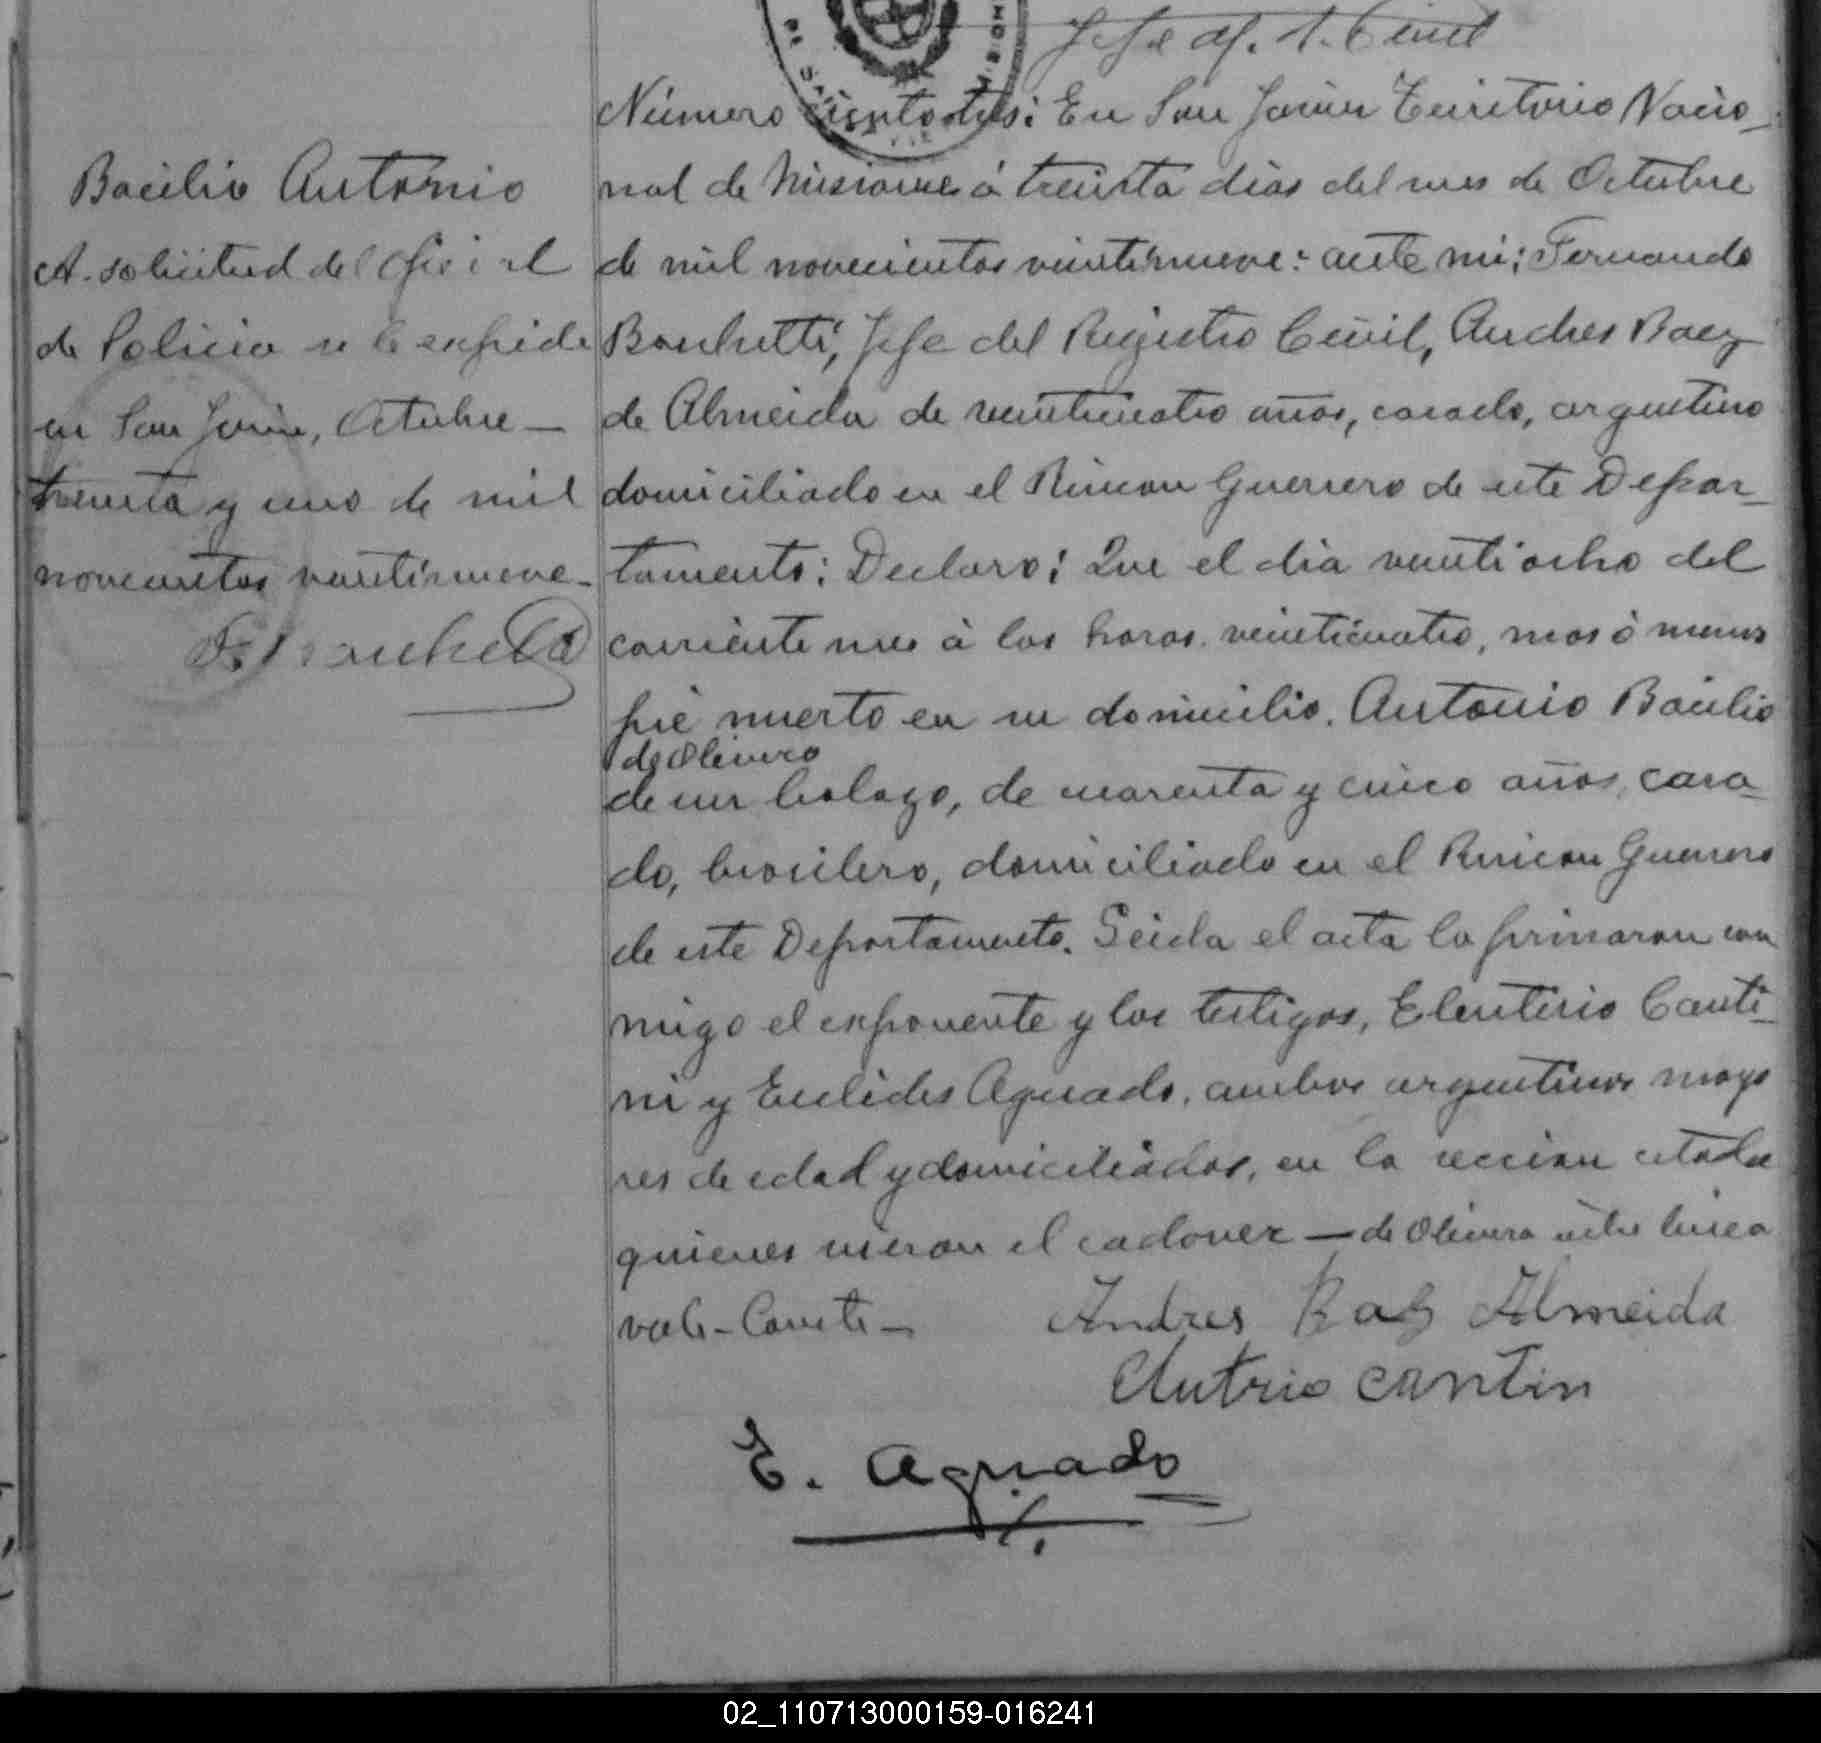 Jefe del R. Civil
Número ciento tres: En San Javier Territorio Nacio-
nal de Misiones á treinta dias del mes de Octubre
de mil novecientos veintinueve: ante mi; Fernando
Jefe del Registro Civil, Andres Baez
de Almeida de veinticuatro años, casado, argentino
domiciliado en el Rincon Guerrero de este Depar-
tamento: Declaro: Que el dia veintiocho del
corriente mes á las horas veinticuatro, mas ó menos
fué muerto en su domicilio. Antonio Bacilio
de Olivera
de un balazo, de cuarenta y cinco años, casa-
do, brasilero, domiciliado en el Rincon Guerrero
de este Departamento. Leida el acta la firmaron con
migo el exponente y los testigos, Eleuterio Canti-
ni y Euclides Aguado, ambos argentinos mayo
res de edad y domiciliados, en la seccion citada
quienes vieron el cadaver — de Olivera entre linea
vale - Conste -
Andres Baez Almeida
cantin
E. Aguado
Bacilio Antonio
A solicitud del Oficial
de Policia se le expide
en San Javier, Octubre —
treinta y uno de mil
novecientos veintinueve -
02_110713000159-016241